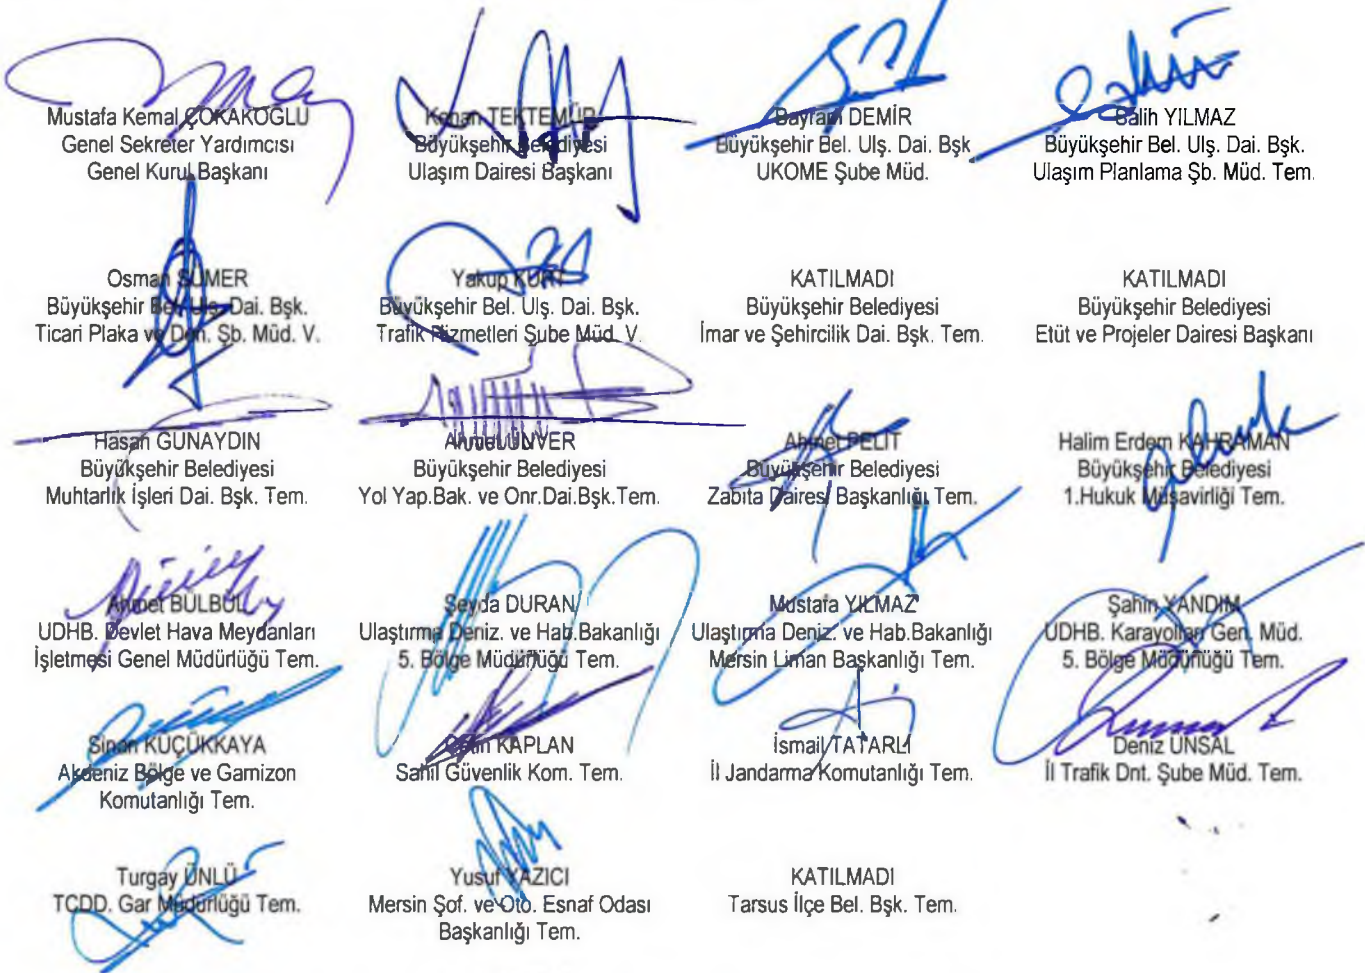 Mustafa Kemal ÇOKAKOĞLU
Genel Sekreter Yardımcısı
Genel Kurul Başkanı
TEKTEMÜR
Büyükşehir Belediyesi
Ulaşım Dairesi Başkanı
Bayram DEMİR
Büyükşehir Bel. Ulş. Dai. Bşk
UKOME Şube Müd.
Salih YILMAZ
Büyükşehir Bel. Ulş. Dai. Bşk.
Ulaşım Planlama Şb. Müd. Tem.
Osman SÜMER
Büyükşehir Bel. Ulş. Dai. Bşk.
Ticari Plaka ve Den. Şb. Müd. V.
Yakup KURT
Büyükşehir Bel. Ulş. Dai. Bşk.
Trafik Hizmetleri Şube Müd. V.
KATILMADI
Büyükşehir Belediyesi
İmar ve Şehircilik Dai. Bşk. Tem.
KATILMADI
Büyükşehir Belediyesi
Etüt ve Projeler Dairesi Başkanı
Hasan GÜNAYDIN
Büyükşehir Belediyesi
Muhtarlık İşleri Dai. Bşk. Tem.
Ahmet ÜNVER
Büyükşehir Belediyesi
Yol Yap.Bak. ve Onr.Dai.Bşk.Tem.
Ahmet PELİT
Büyükşehir Belediyesi
Zabıta Dairesi Başkanlığı Tem.
Halim Erdem KAHRAMAN
Büyükşehir Belediyesi
1.Hukuk Müşavirliği Tem.
Ahmet BÜLBÜL
UDHB. Devlet Hava Meydanları
İşletmesi Genel Müdürlüğü Tem.
Şeyda DURAN
Ulaştırma Deniz. ve Hab.Bakanlığı
5. Bölge Müdürlüğü Tem.
Mustafa YILMAZ
Ulaştırma Deniz. ve Hab.Bakanlığı
Mersin Liman Başkanlığı Tem.
Şahin YANDIM
UDHB. Karayolları Gen. Müd.
5. Bölge Müdürlüğü Tem.
Sinan KÜÇÜKKAYA
Akdeniz Bölge ve Garnizon
Komutanlığı Tem.
KAPLAN
Sahil Güvenlik Kom. Tem.
İsmail TATARLI
İl Jandarma Komutanlığı Tem.
Deniz ÜNSAL
İl Trafik Dnt. Şube Müd. Tem.
Turgay ÜNLÜ
TCDD. Gar Müdürlüğü Tem.
Yusuf YAZICI
Mersin Şof. ve Oto. Esnaf Odası
Başkanlığı Tem.
KATILMADI
Tarsus İlçe Bel. Bşk. Tem.